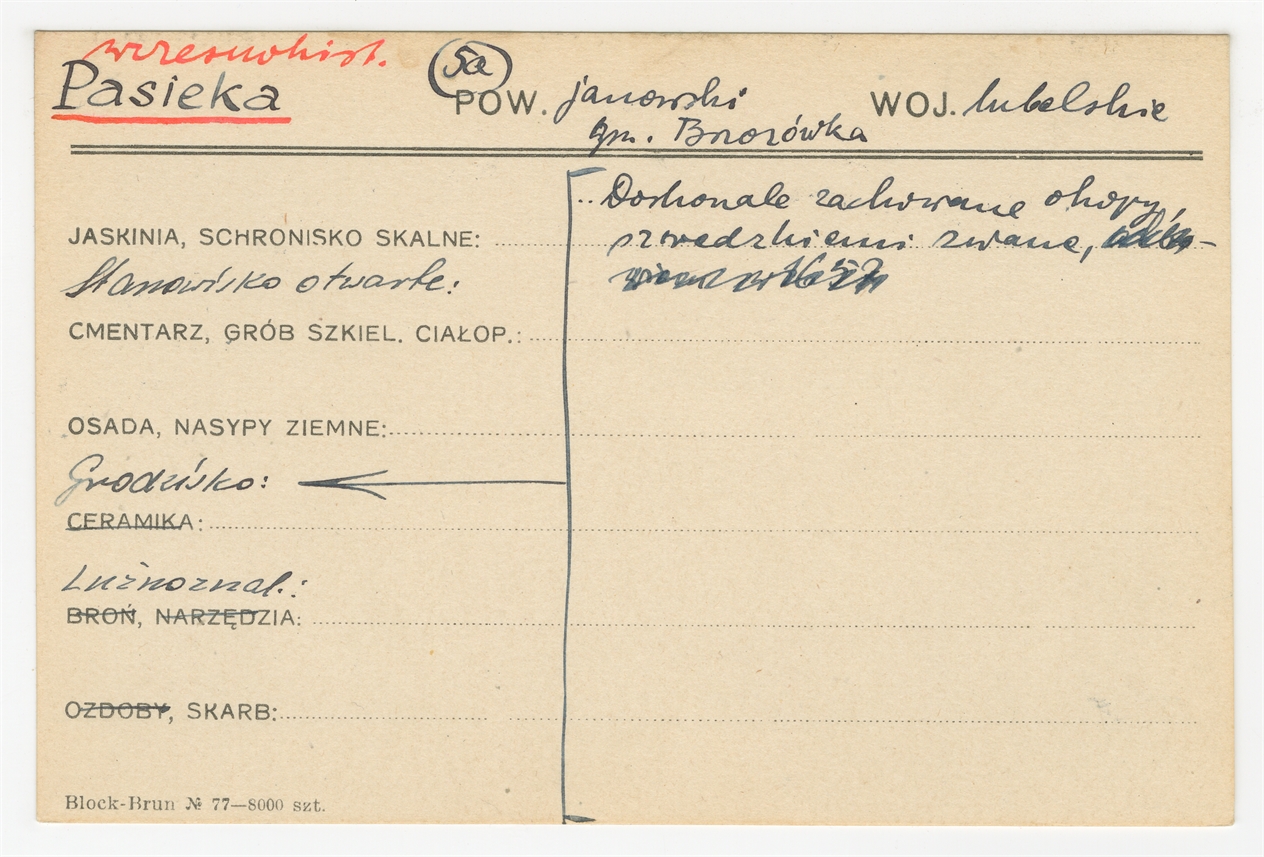 wczesnohist.
Pasieka
5a
POW. janowski WOJ. lubelskie
gm. Brzozówka
Doskonale zachowane okopy,
JASKINIA, SCHRONISKO SKALNE: szwedzkiemi zwane,
Stanowisko otwarte:
CMENTARZ, GRÓB SZKIEL. CIAŁOP.:
OSADA, NASYPY ZIEMNE:
Grodzisko:
CERAMIKA:
Luźnoznal.:
BROŃ, NARZĘDZIA:
OZDOBY, SKARB:
Block-Brun № 77—8000 szt.